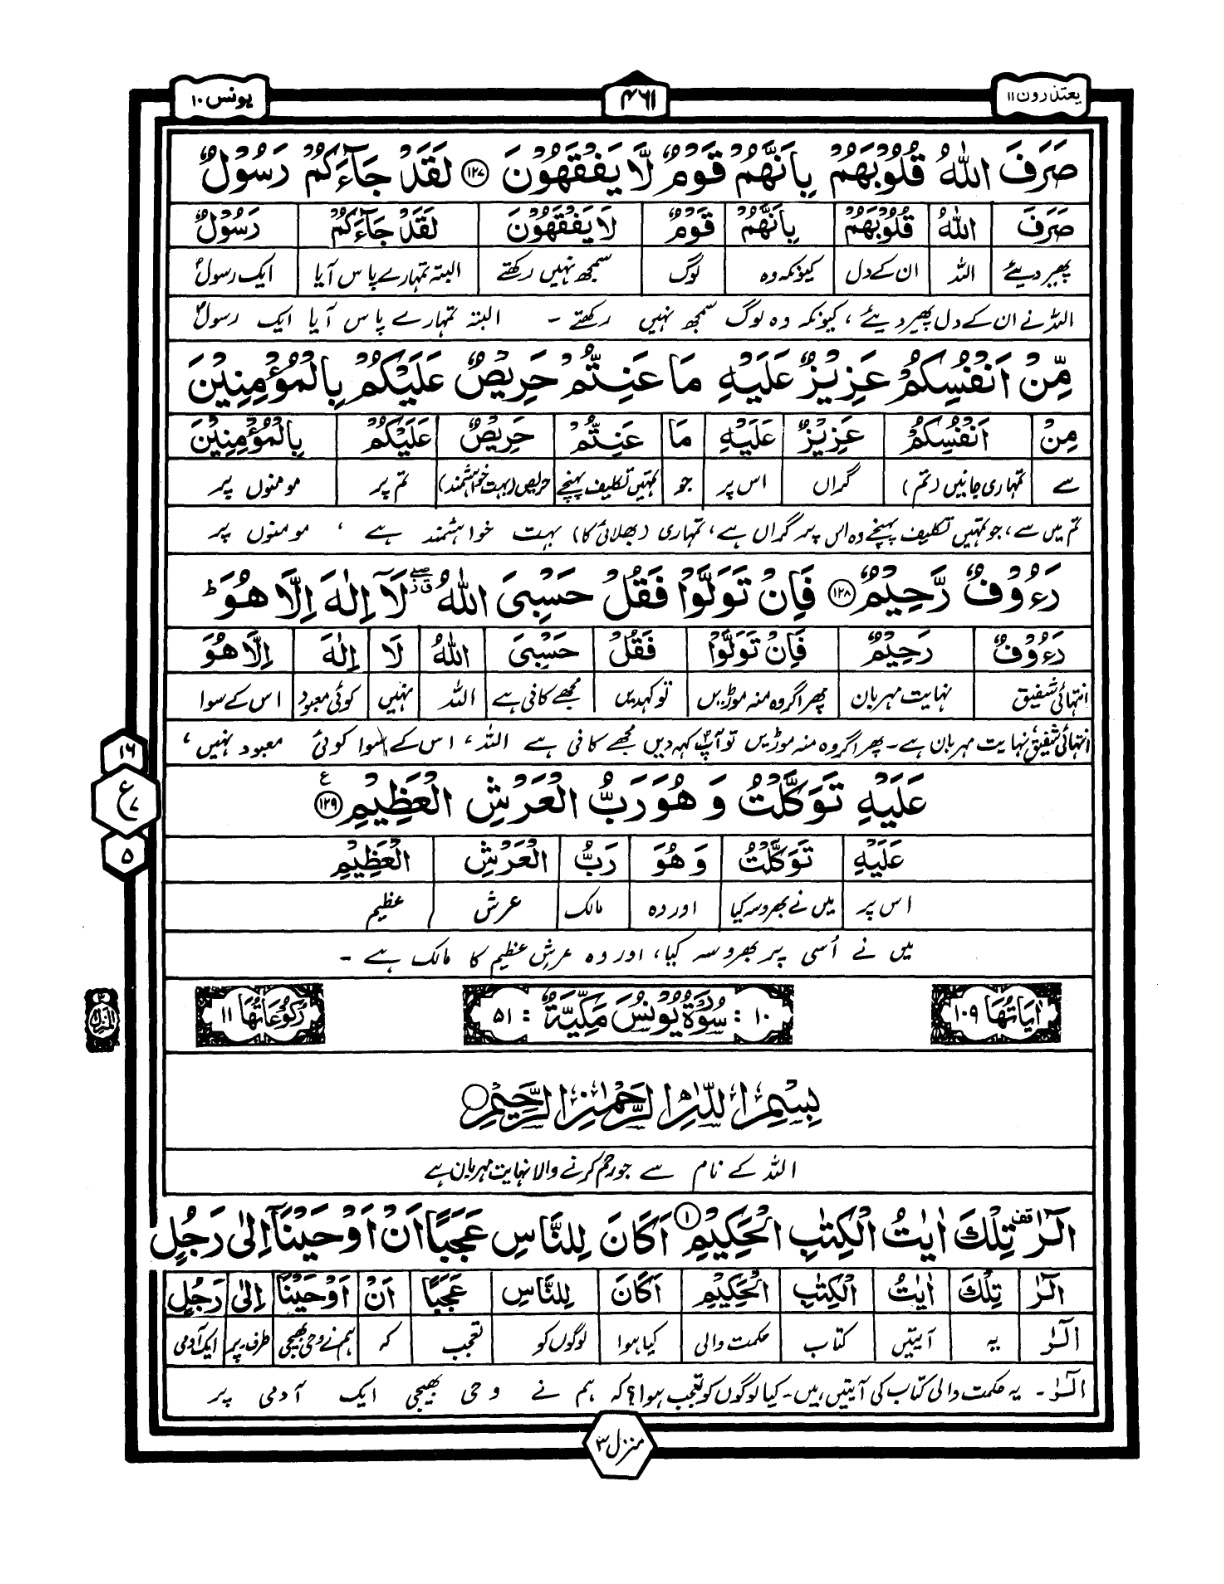 یعتذرون ۱۱
۴۶۱
یونس ۱۰
صَرَفَ اللّٰهُ قُلُوْبَهُمْ بِاَنَّهُمْ قَوْمٌ لَّا یَفْقَهُوْنَ ﴿۱۲۷﴾ لَقَدْ جَآءَكُمْ رَسُوْلٌ
صَرَفَ اللّٰهُ قُلُوْبَهُمْ بِاَنَّهُمْ قَوْمٌ لَا یَفْقَهُوْنَ لَقَدْ جَآءَكُمْ رَسُوْلٌ
پھیر دیئے اللہ ان کے دل کیونکہ وہ لوگ سمجھ نہیں رکھتے البتہ تمہارے پاس آیا ایک رسولؐ
اللہ نے ان کے دل پھیر دیئے، کیونکہ وہ لوگ سمجھ نہیں رکھتے ۔ البتہ تمہارے پاس آیا ایک رسولؐ
مِّنْ اَنْفُسِكُمْ عَزِیْزٌ عَلَیْهِ مَا عَنِتُّمْ حَرِیْصٌ عَلَیْكُمْ بِالْمُؤْمِنِیْنَ
مِنْ اَنْفُسِكُمْ عَزِیْزٌ عَلَیْهِ مَا عَنِتُّمْ حَرِیْصٌ عَلَیْكُمْ بِالْمُؤْمِنِیْنَ
سے تمہاری جانیں (تم) گراں اس پر جو تمہیں تکلیف پہنچے حریص (بہت خواہشمند) تم پر مومنوں پر
تم میں سے، جو تمہیں تکلیف پہنچے وہ اس پر گراں ہے، تمہاری (بھلائی کا) بہت خواہشمند ہے ، مومنوں پر
رَءُوْفٌ رَّحِیْمٌ ﴿۱۲۸﴾ فَاِنْ تَوَلَّوْا فَقُلْ حَسْبِیَ اللّٰهُ لَآ اِلٰهَ اِلَّا هُوَ ؕ
رَءُوْفٌ رَحِیْمٌ فَاِنْ تَوَلَّوْا فَقُلْ حَسْبِیَ اللّٰهُ لَا اِلٰهَ اِلَّا هُوَ
انتہائی شفیق نہایت مہربان پھر اگر وہ منہ موڑیں تو کہدیں مجھے کافی ہے اللہ نہیں کوئی معبود اس کے سوا
انتہائی شفیق نہایت مہربان ہے۔ پھر اگر وہ منہ موڑیں تو آپؐ کہہ دیں مجھے کافی ہے اللہ، اس کے سوا کوئی معبود نہیں،
۱۶
ع
۷
۵
عَلَیْهِ تَوَكَّلْتُ وَ هُوَ رَبُّ الْعَرْشِ الْعَظِیْمِ ﴿۱۲۹﴾ ع
عَلَیْهِ تَوَكَّلْتُ وَ هُوَ رَبُّ الْعَرْشِ الْعَظِیْمِ
اس پر میں نے بھروسہ کیا اور وہ مالک عرش عظیم
میں نے اُسی پر بھروسہ کیا، اور وہ عرشِ عظیم کا مالک ہے ۔
اٰیَاتُهَا ۱۰۹
۱۰ : سُوْرَةُ یُوْنُسَ مَكِّیَّةٌ : ۵۱
رُكُوْعَاتُهَا ۱۱
المنزل ۳
بِسْمِ اللّٰهِ الرَّحْمٰنِ الرَّحِیْمِ
اللہ کے نام سے جو رحم کرنے والا نہایت مہربان ہے
الٓرٰ قف تِلْكَ اٰیٰتُ الْكِتٰبِ الْحَكِیْمِ ﴿۱﴾ اَكَانَ لِلنَّاسِ عَجَبًا اَنْ اَوْحَیْنَاۤ اِلٰی رَجُلٍ
الٓرٰ تِلْكَ اٰیٰتُ الْكِتٰبِ الْحَكِیْمِ اَكَانَ لِلنَّاسِ عَجَبًا اَنْ اَوْحَیْنَا اِلٰی رَجُلٍ
الٓرٰ یہ آیتیں کتاب حکمت والی کیا ہوا لوگوں کو تعجب کہ ہم نے وحی بھیجی طرف پر ایک آدمی
الٓرٰ ۔ یہ حکمت والی کتاب کی آیتیں ہیں۔ کیا لوگوں کو تعجب ہوا؟ کہ ہم نے وحی بھیجی ایک آدمی پر
منزل ۳